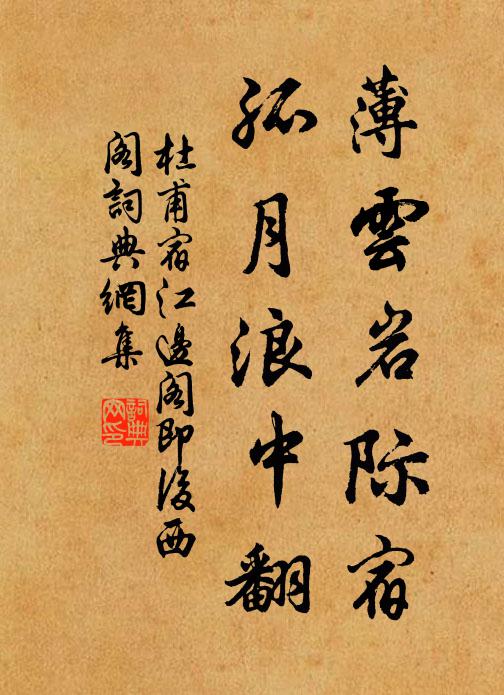 薄雲岩际宿
孤月浪中翻
杜甫宿江邊阁即後西
阁詞典網集
詞典
网印